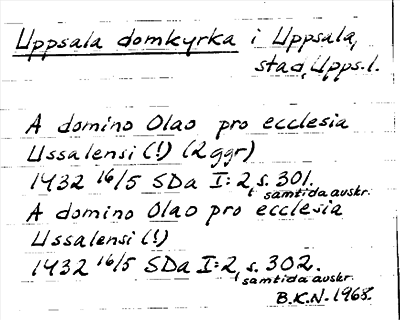 Uppsala domkyrka i Uppsala,
stad, Upps.l.
A domino Olao pro ecclesia
Ussalensi (!) (2 ggr)
1432 16/5 SDa I:2, s. 301.
samtida avskr.
A domino Olao pro ecclesia
Ussalensi (!)
1432 16/5 SDa I:2, s. 302.
samtida avskr.
B.K.N. 1968.